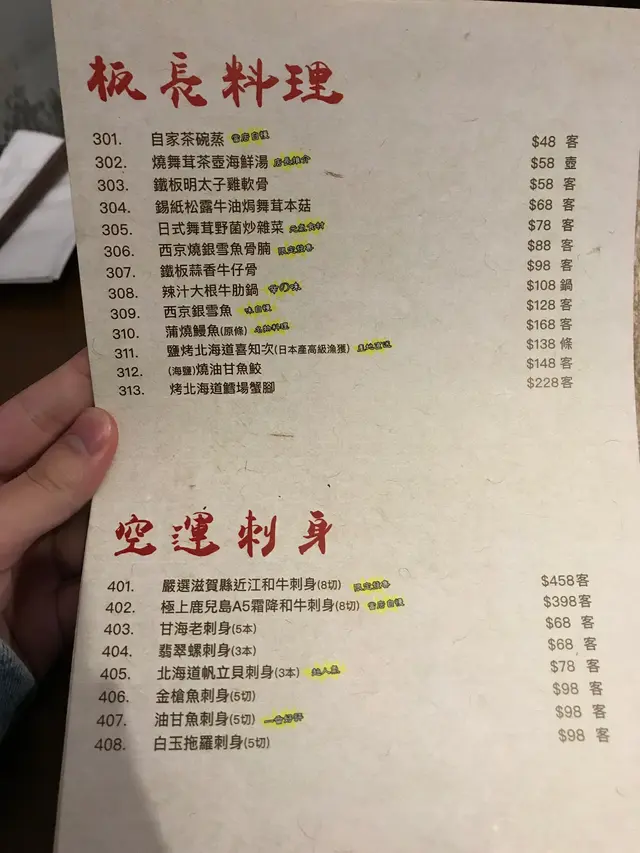 板長料理
301. 自家茶碗蒸 當店自慢 $48 客
302. 燒舞茸茶壺海鮮湯 店長推介 $58 壺
303. 鐵板明太子雞軟骨 $58 客
304. 錫紙松露牛油焗舞茸本菇 $68 客
305. 日式舞茸野菌炒雜菜 $78 客
306. 西京燒銀雪魚骨腩 限定發售 $88 客
307. 鐵板蒜香牛仔骨 $98 客
308. 辣汁大根牛肋鍋 $108 鍋
309. 西京銀雪魚 味自慢 $128 客
310. 蒲燒鰻魚(原條) 名物料理 $168 客
311. 鹽烤北海道喜知次(日本產高級漁獲) 產地直送 $138 條
312. (海鹽)燒油甘魚鮫 $148 客
313. 烤北海道鱈場蟹腳 $228客
空運刺身
401. 嚴選滋賀縣近江和牛刺身(8切) 限定發售 $458客
402. 極上鹿兒島A5霜降和牛刺身(8切) 當店自慢 $398客
403. 甘海老刺身(5本) $68 客
404. 翡翠螺刺身(3本) $68 客
405. 北海道帆立貝刺身(3本) 超人氣 $78 客
406. 金槍魚刺身(5切) $98 客
407. 油甘魚刺身(5切) 一番好評 $98 客
408. 白玉拖羅刺身(5切) $98 客